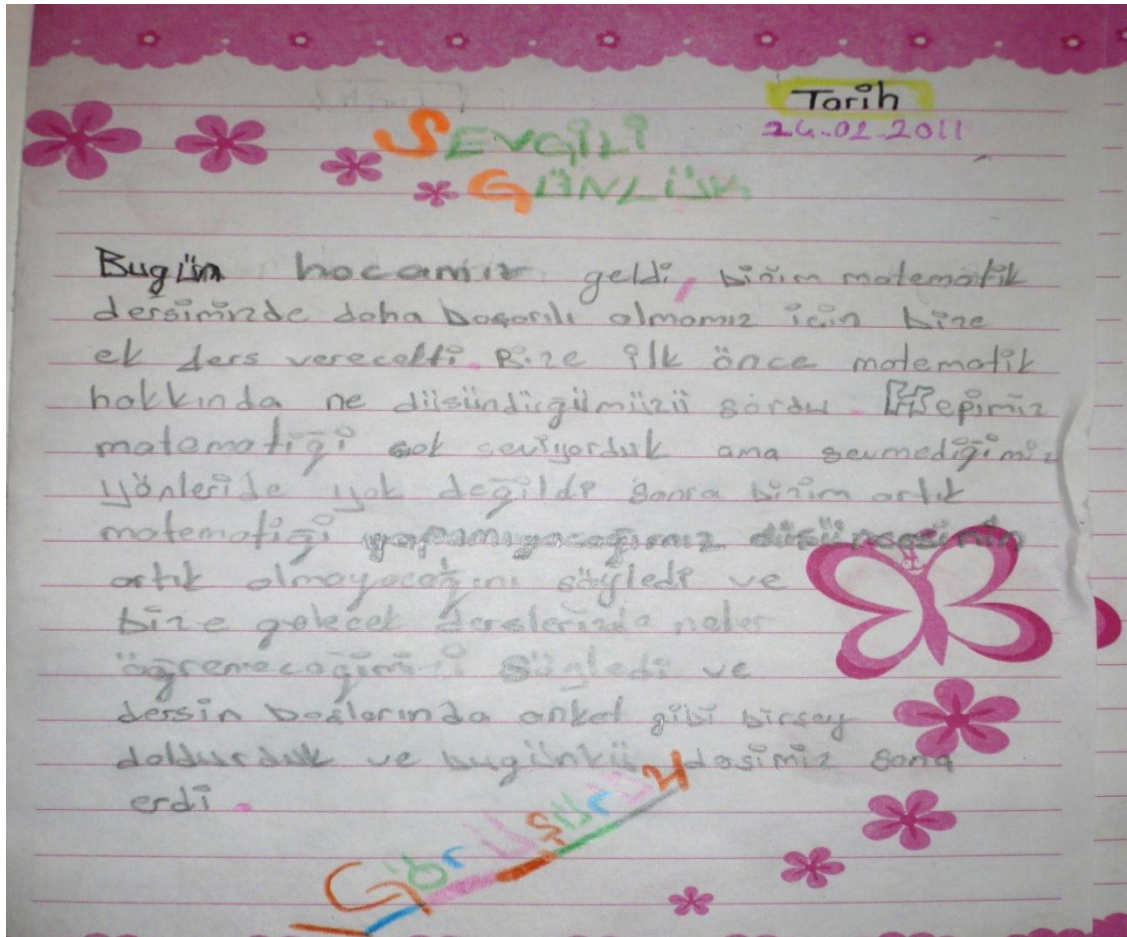 Tarih
24.02.2011
SEVGİLİ
GÜNLÜK
Bugün hocamız geldi, bizim matematik
dersimizde daha başarılı olmamız için bize
ek ders verecekti. Bize ilk önce matematik
hakkında ne düşündüğümüzü sordu. Hepimiz
matematiği çok seviyorduk ama sevmediğimiz
yönleride yok değildi sonra bizim artık
matematiği yapamıyacağımız düşüncesinin
artık olmayacağını söyledi ve
bize gelecek derslerinde neler
öğreneceğimizi söyledi ve
dersin başlarında anket gibi birşey
doldurduk ve bugünkü dersimiz sona
erdi.
Görüşürüm